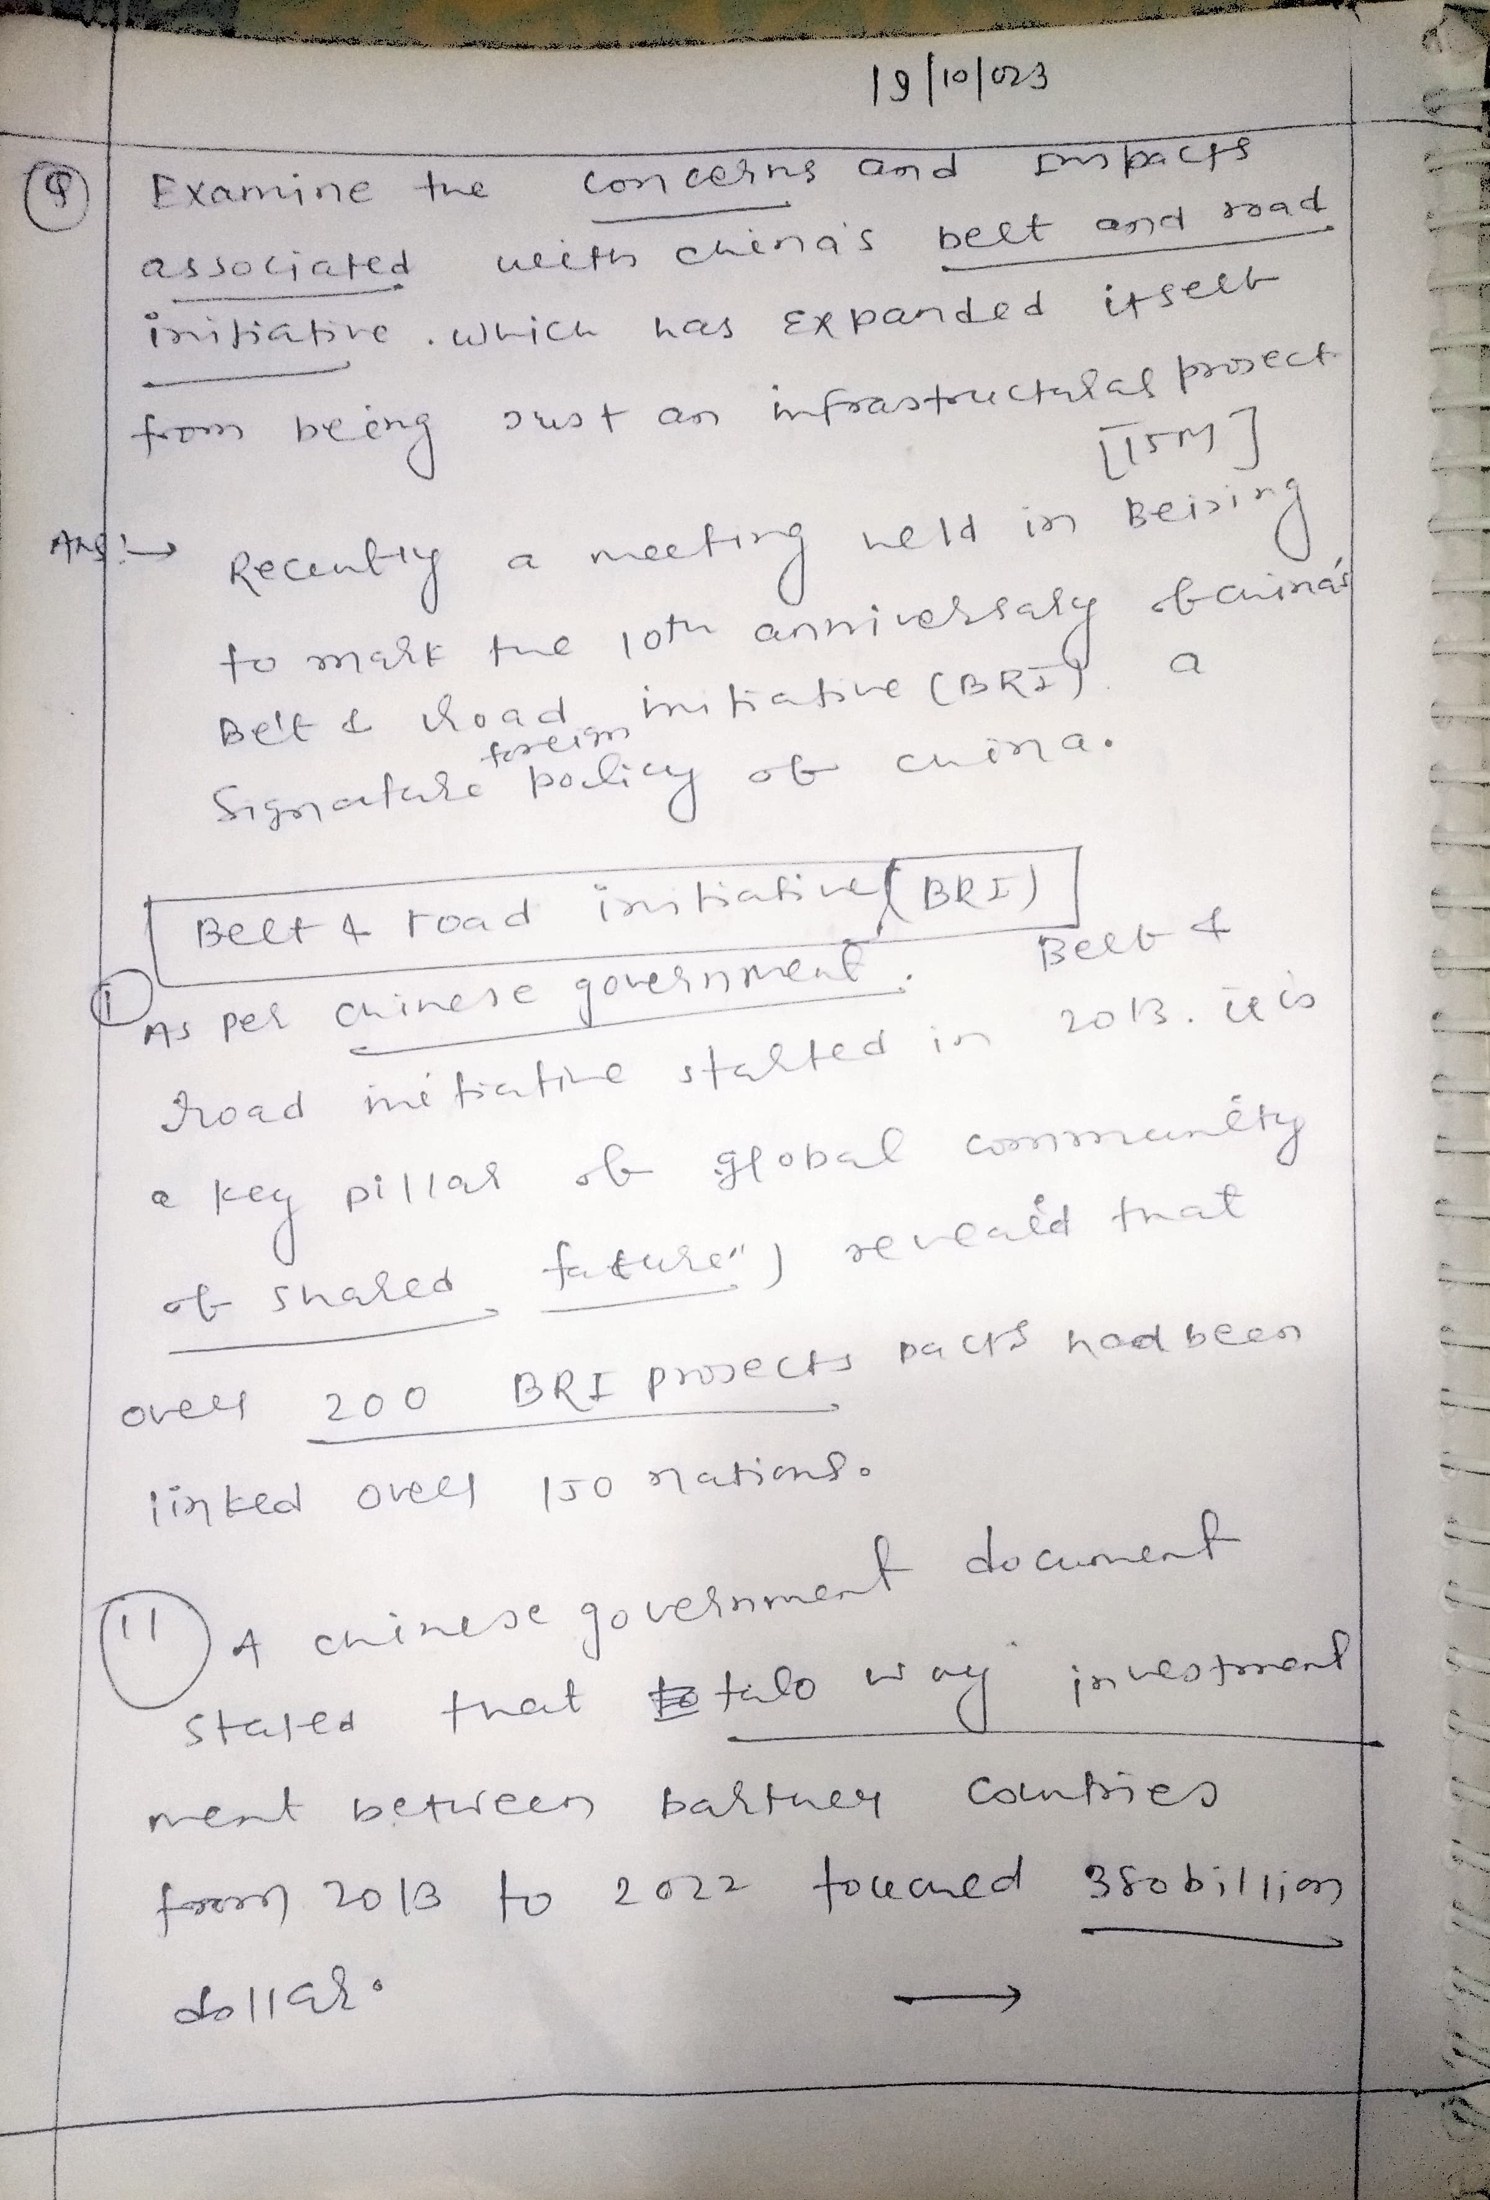 19/10/023
Q Examine the concerns and Impacts
associated with china's belt and road
initiative. which has Expanded itself
from being just an infrastructural project
[15M]
Ans:→ Recently a meeting held in Beijing
to mark the 10th anniversary of china's
Belt & Road initiative (BRI) a
foreign
Signature policy of china.
Belt & road initiative (BRI)
(i) As per chinese government. Belt &
road initiative started in 2013. it is
a key pillar of global community
of shared future", reveald that
over 200 BRI projects pacts had been
linked over 150 nations.
(ii) A chinese government document
stated that two way investment
ment between partner countries
from 2013 to 2022 touched 380 billion
dollar. →